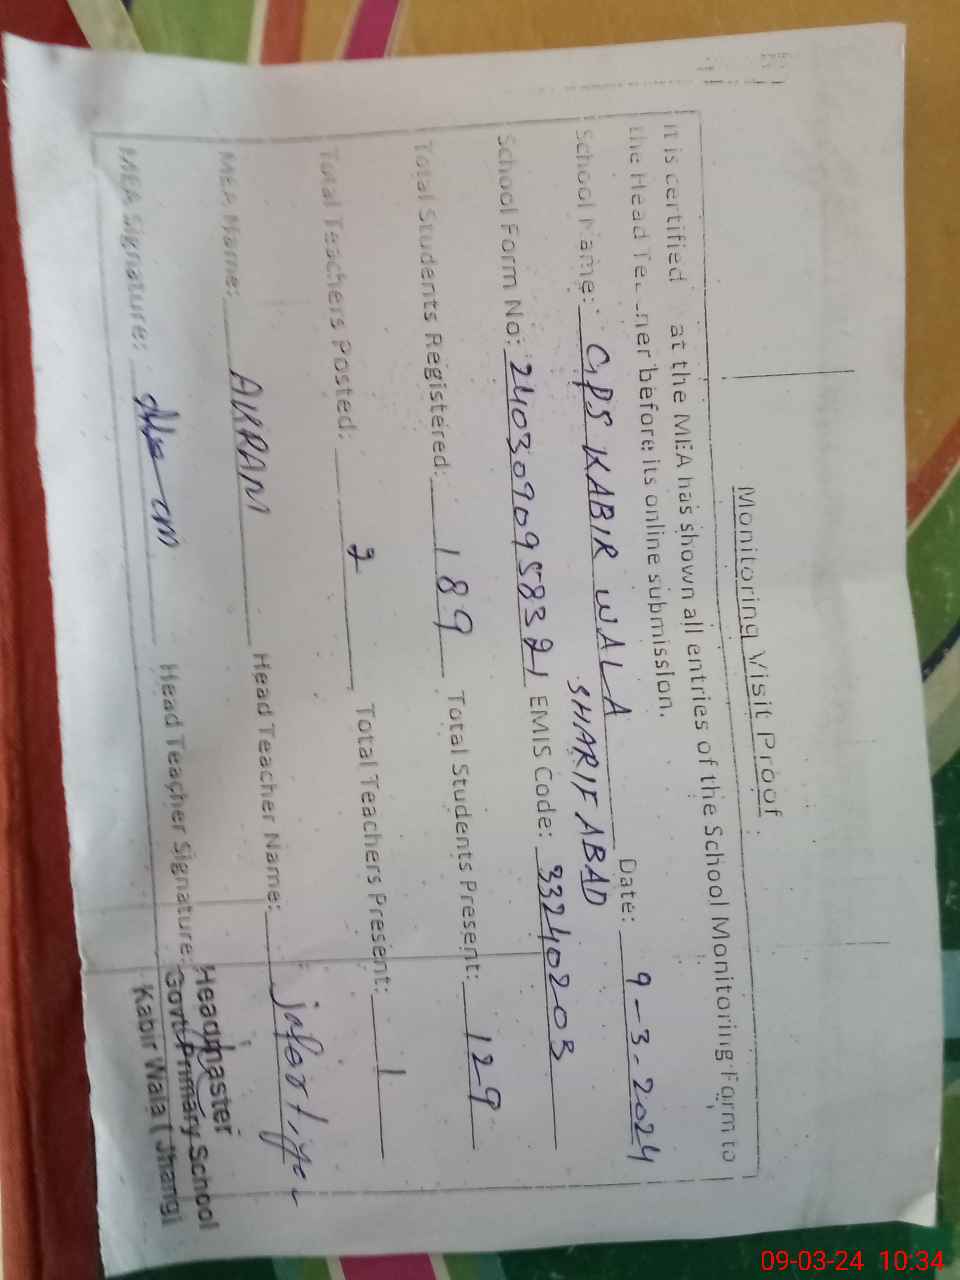 Monitoring Visit Proof
It is certified at the MEA has shown all entries of the School Monitoring Form to
the Head before its online submission.
School Name: GPS KABIR WALA Date: 9-3-2024
SHARIFABAD
School Form No: EMIS Code: 33240203
Total Students Registered: 189 Total Students Present: 129
Total Teachers Posted: 2 Total Teachers Present: 1
MEA Name: AKRAM Head Teacher Name:
MEA Signature: Head Teacher Signature:
Headmaster
Govt: Primary School
Kabir Wala ( Jhang)
09-03-24 10:34